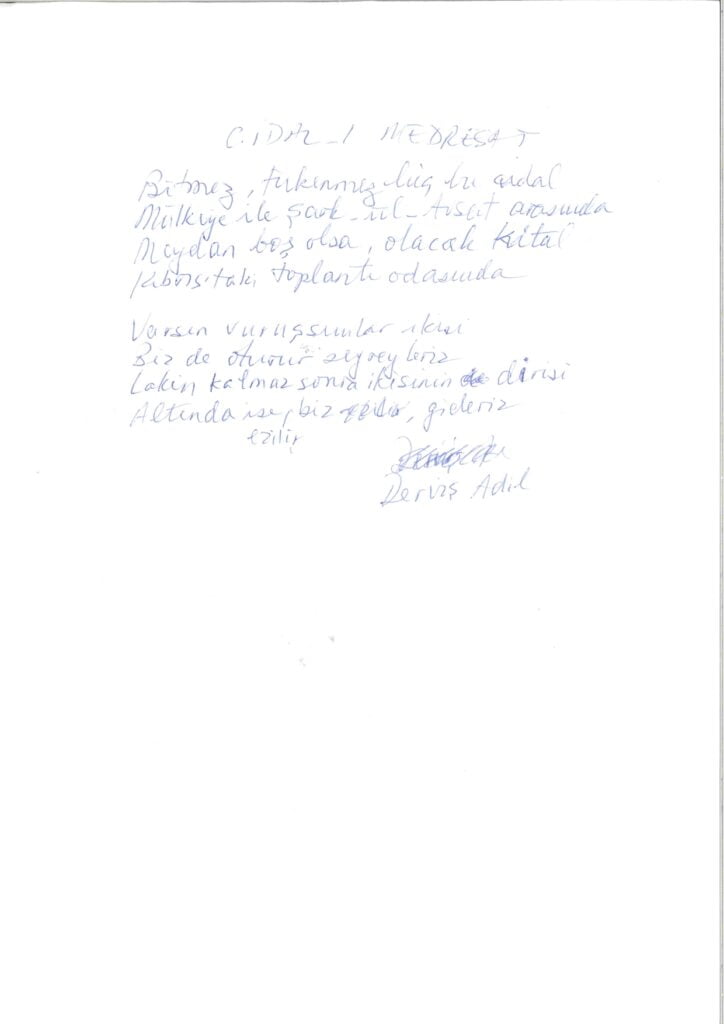 CİDAL-I MEDRESAT
Bitmez, tükenmez hiç bu cidal
Mülkiye ile Şark-ül-Avsat arasında
Meydan boş olsa, olacak kıtal
Kıbrıs'taki toplantı odasında
Varsın vuruşsunlar ikisi
Biz de oturur seyreyleriz
Lakin kalmaz sonra ikisinin dirisi
Altında ise, biz, gideriz
ezilir
Derviş Adil